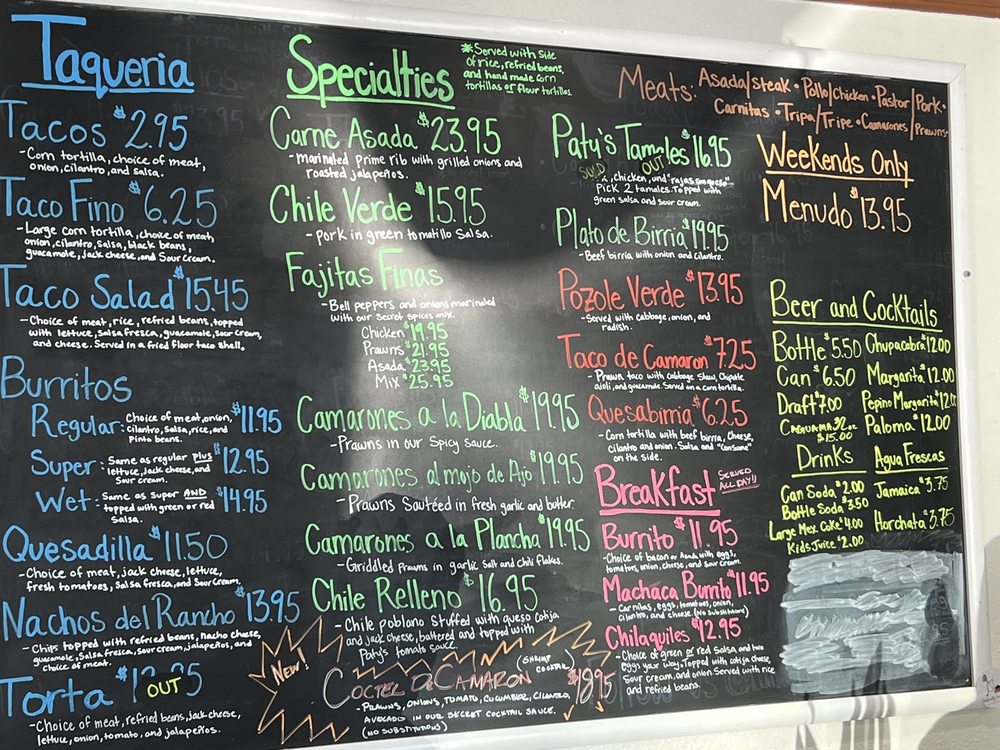 Taqueria
Tacos $2.95
-Corn tortilla, choice of meat,
onion, cilantro, and salsa.
Taco Fino $6.25
-Large corn tortilla, choice of meat,
onion, cilantro, salsa, black beans,
guacamole, jack cheese, and Sour Cream.
Taco Salad $15.45
-Choice of meat, rice, refried beans, topped
with lettuce, salsa fresca, guacamole, sour cream,
and cheese. Served in a fried flour taco shell.
Burritos
Regular: Choice of meat, onion,
Cilantro, Salsa, rice, and
Pinto beans. $11.95
Super: Same as regular plus
lettuce, jack cheese, and
Sour cream. $12.95
Wet - Same as super AND
topped with green or red
salsa. $14.95
Quesadilla $11.50
-Choice of meat, jack cheese, lettuce,
fresh tomatoes, Salsa fresca, and Sour Cream.
Nachos del Rancho $13.95
-Chips topped with refried beans, nacho cheese,
guacamole, Salsa fresca, Sour cream, jalapeños, and
Choice of meat.
Torta OUT
-Choice of meat, refried beans, jack cheese,
lettuce, onion, tomato, and jalapeños.
Specialties
*Served with side
of rice, refried beans,
and hand made corn
tortillas or flour tortillas.
Carne Asada $23.95
-marinated prime rib with grilled onions and
roasted jalapeños.
Chile Verde $15.95
-pork in green tomatillo Salsa.
Fajitas Finas
-Bell peppers and onions marinated
with our secret spices mix.
Chicken $19.95
Prawns $21.95
Asada $23.95
Mix $25.95
Camarones a la Diabla $19.95
-Prawns in our Spicy sauce.
Camarones al mojo de Ajo $19.95
-Prawns Sautéed in fresh garlic and butter.
Camarones a la Plancha $19.95
-Griddled prawns in garlic Salt and chili flakes.
Chile Relleno $16.95
-Chile poblano stuffed with queso cotija
and jack cheese, battered and topped with
Paty's tomato sauce.
NEW!
COCTEL DE CAMARON (SHRIMP
COCKTAIL) $18.95
-PRAWNS, ONIONS, TOMATO, CUCUMBER, CILANTRO,
AVOCADO IN OUR SECRET COCKTAIL SAUCE.
(NO SUBSTITUTIONS)
Meats: Asada/Steak • Pollo/Chicken • Pastor/Pork •
Carnitas • Tripa/Tripe • Camarones/Prawns
Paty's Tamales $16.95
SOLD OUT
chicken, and "rajas con queso"
Pick 2 tamales. Topped with
green salsa and sour cream.
Plato de Birria $19.95
-Beef birria with onion and cilantro.
Pozole Verde $13.95
-Served with cabbage, onion, and
radish.
Taco de Camaron $7.25
-Prawn taco with cabbage slaw, Chipotle
aioli, and guacamole. Served on a corn tortilla.
Quesabirria $6.25
-Corn tortilla with beef birria, cheese,
cilantro and onion. Salsa and "Consume"
on the side.
Breakfast SERVED
ALL DAY!!
Burrito $11.95
-Choice of bacon or Asada with eggs,
tomatoes, onion, cheese, and Sour cream.
Machaca Burrito $11.95
-Carnitas, eggs, tomatoes, onion,
cilantro, and cheese. (No Substitutions)
Chilaquiles $12.95
-Choice of green or red Salsa and two
eggs your way. Topped with cotija cheese,
Sour cream, and onion. Served with rice
and refried beans.
Weekends Only
Menudo $13.95
Beer and Cocktails
Bottle $5.50 Chupacabra $12.00
Can $6.50 Margarita $12.00
Draft $7.00 Pepino Margarita $12.00
32oz Paloma $12.00
$15.00
Drinks Agua Frescas
Can Soda $2.00 Jamaica $3.75
Bottle Soda $3.50
Large Mex. Coke $4.00 Horchata $3.75
Kids Juice $2.00